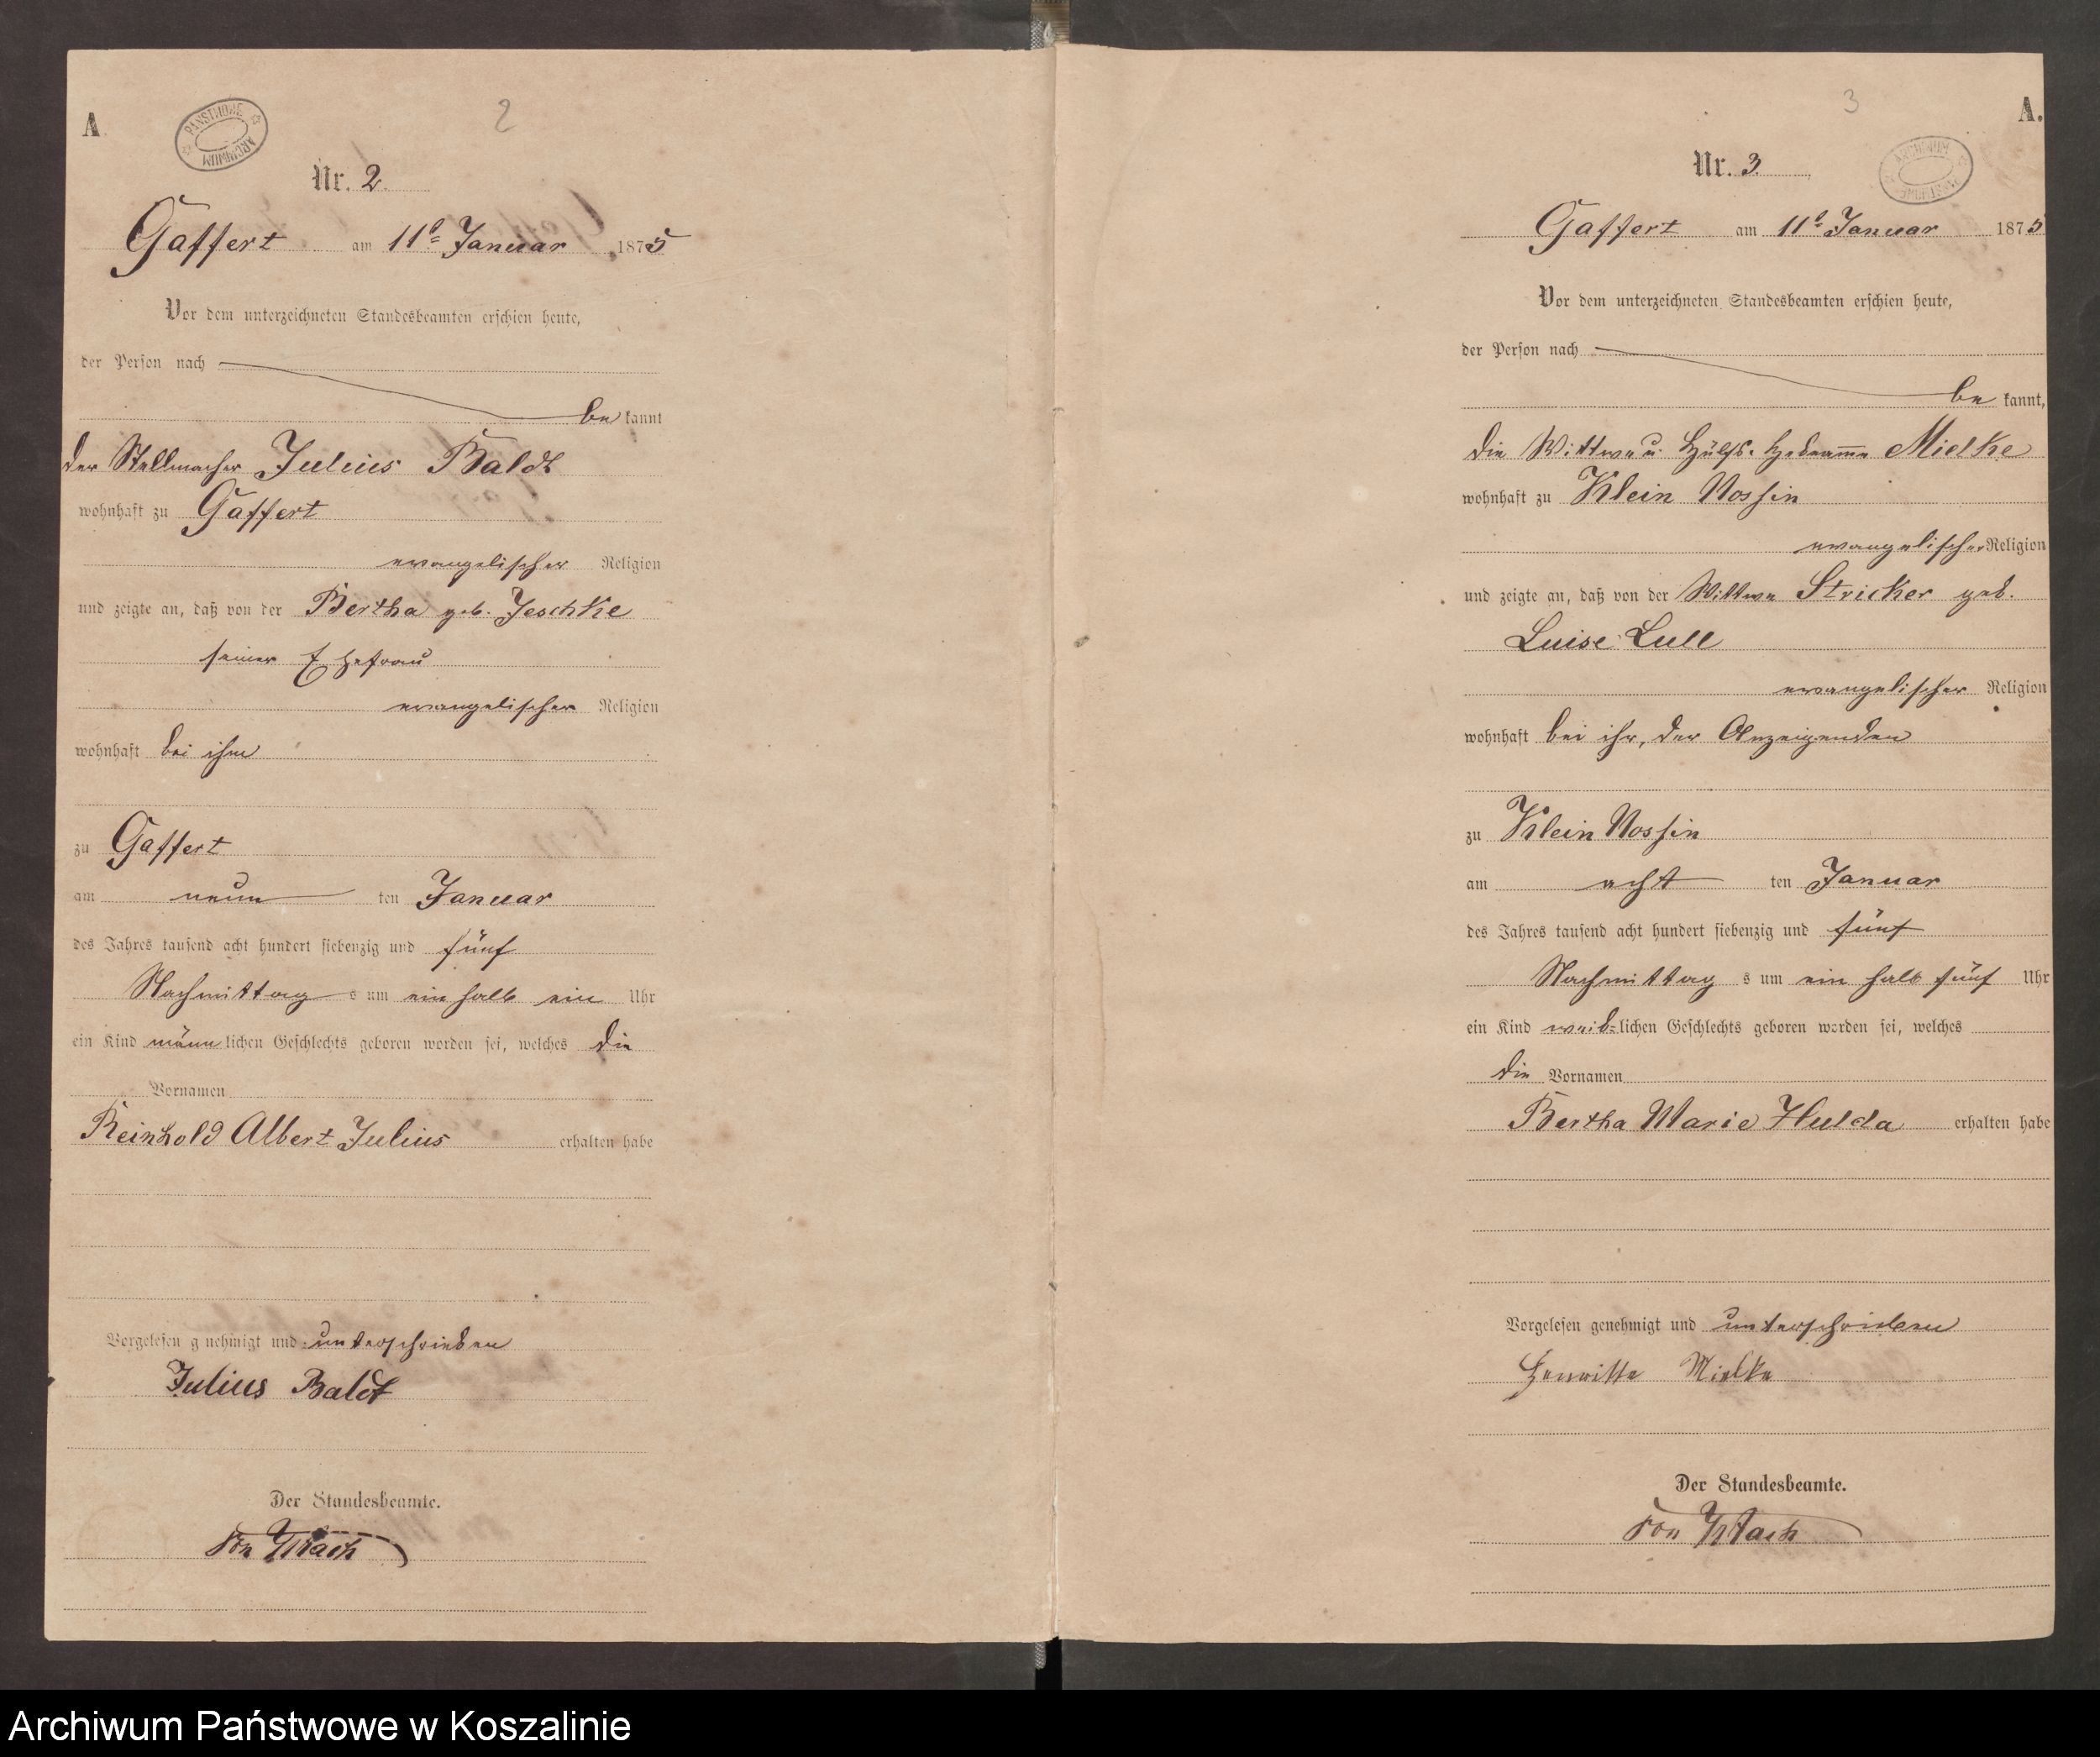 A
PAŃSTWOWE ARCHIWUM
2
Nr. 2.
Gaffert am 11t Januar 1875
Vor dem unterzeichneten Standesbeamten erschien heute,
der Person nach
be kannt
der Stellmacher Julius Baldt
wohnhaft zu Gaffert
evangelischer Religion
und zeigte an, daß von der Bertha geb. Jeschke
seiner Ehefrau
evangelischer Religion
wohnhaft bei ihm
zu Gaffert
am neun ten Januar
des Jahres tausend acht hundert siebenzig und fünf
Nachmittag s um ein halb ein Uhr
ein Kind männ lichen Geschlechts geboren worden sei, welches die
Vornamen
Reinhold Albert Julius erhalten habe
Vorgelesen genehmigt und unterschrieben
Julius Baldt
Der Standesbeamte.
von
3
A.
ARCHIWUM PAŃSTWOWE
Nr. 3.
Gaffert am 11t Januar 1875
Vor dem unterzeichneten Standesbeamten erschien heute,
der Person nach
be kannt,
die Wittwe u. Hülfs-Hebamme Mielke
wohnhaft zu Klein Nossin
evangelischer Religion
und zeigte an, daß von der Wittwe Stricker geb.
Luise Lull
evangelischer Religion
wohnhaft bei ihr, der Anzeigenden
zu Klein Nossin
am acht ten Januar
des Jahres tausend acht hundert siebenzig und fünf
Nachmittag s um ein halb fünf Uhr
ein Kind weib- lichen Geschlechts geboren worden sei, welches
die Vornamen
Bertha Marie Hulda erhalten habe
Vorgelesen genehmigt und unterschrieben
Henritte Mielke
Der Standesbeamte.
von
Archiwum Państwowe w Koszalinie